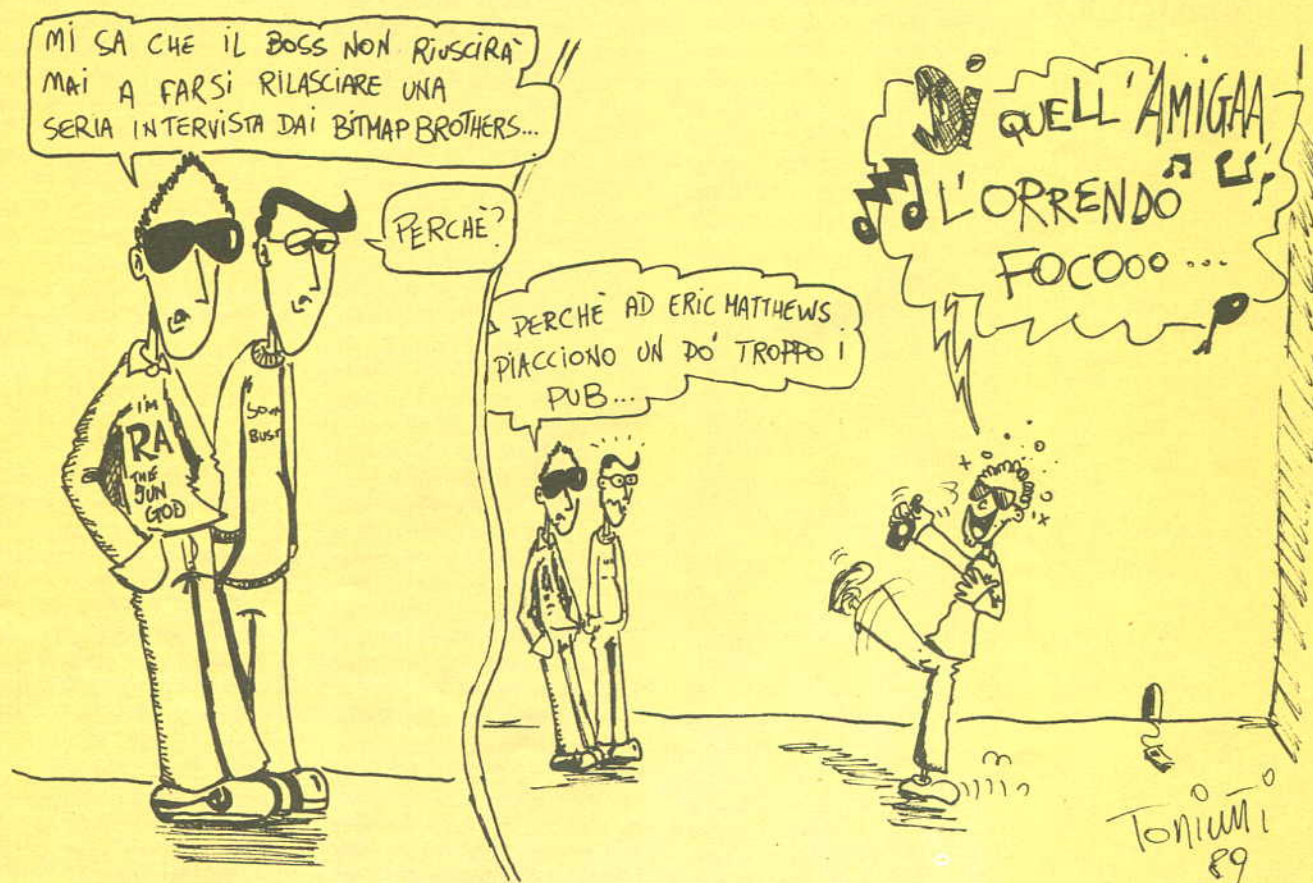 MI SA CHE IL BOSS NON RIUSCIRÀ
MAI A FARSI RILASCIARE UNA
SERIA INTERVISTA DAI BITMAP BROTHERS...
PERCHÈ?
I'M
RA
THE
SUN
GOD
BUST
PERCHÈ AD ERIC MATTHEWS
PIACCIONO UN PO' TROPPO I
PUB...
DI QUELL'AMIGAA
L'ORRENDO
FOCOOO...
89